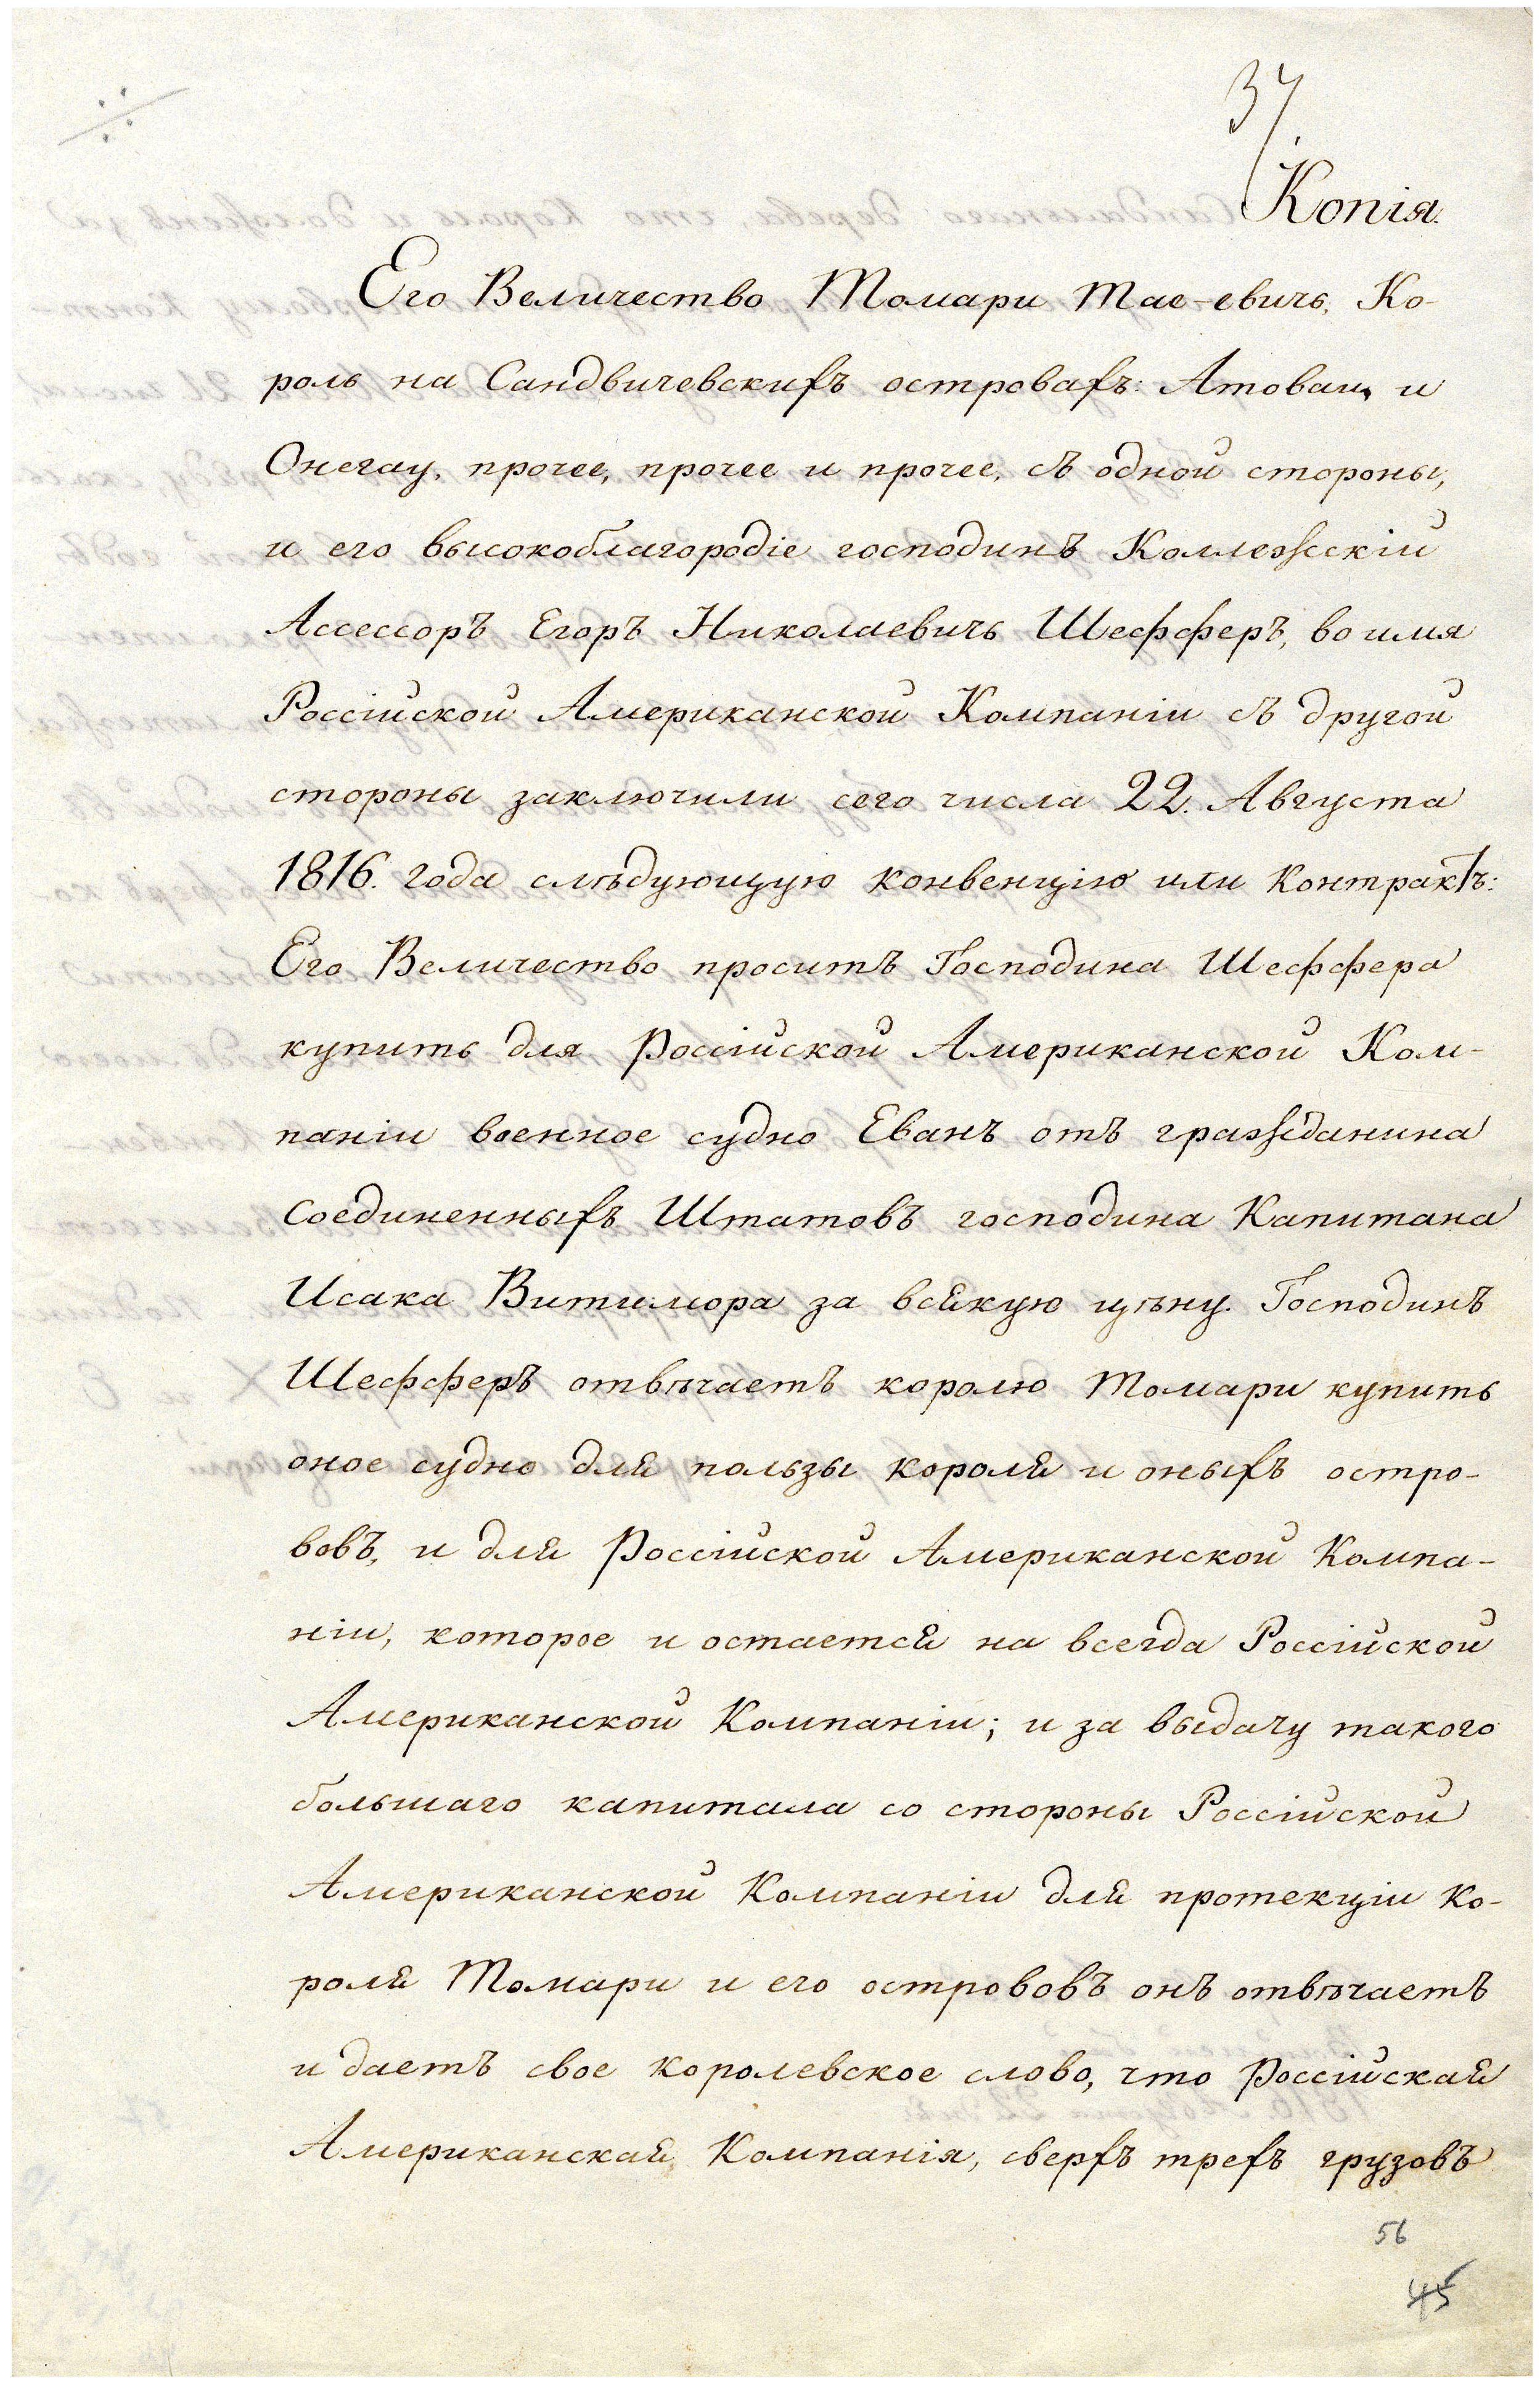 37.
Копія.
Его Величество Томари Тае-евичь, Ко-
роль на Сандвичевскихъ островахъ: Атоваи, и
Онегау, прочее, прочее и прочее, съ одной стороны,
и его высокоблагородіе господинъ Коллежскій
Ассессоръ Егоръ Николаевичь Шефферъ, во имя
Россійской Американской Компаніи съ другой
стороны заключили сего числа 22. Августа
1816. года слѣдующую конвенцію или контрактъ:
Его Величество проситъ Господина Шеффера
купить для Россійской Американской Ком-
паніи военное судно Еванъ отъ гражданина
Соединенныхъ Штатовъ господина Капитана
Исака Витимора за всякую цѣну. Господинъ
Шефферъ отвѣчаетъ королю Томари купить
оное судно для пользы короля и оныхъ остро-
вовъ, и для Россійской Американской Компа-
ніи, которое и остается на всегда Россійской
Американской Компаніи; и за выдачу такого
большаго капитала со стороны Россійской
Американской Компаніи для протекціи Ко-
роля Томари и его острововъ онъ отвѣчаетъ
и даетъ свое королевское слово, что Россійская
Американская Компанія, сверхъ трехъ грузовъ
56
45